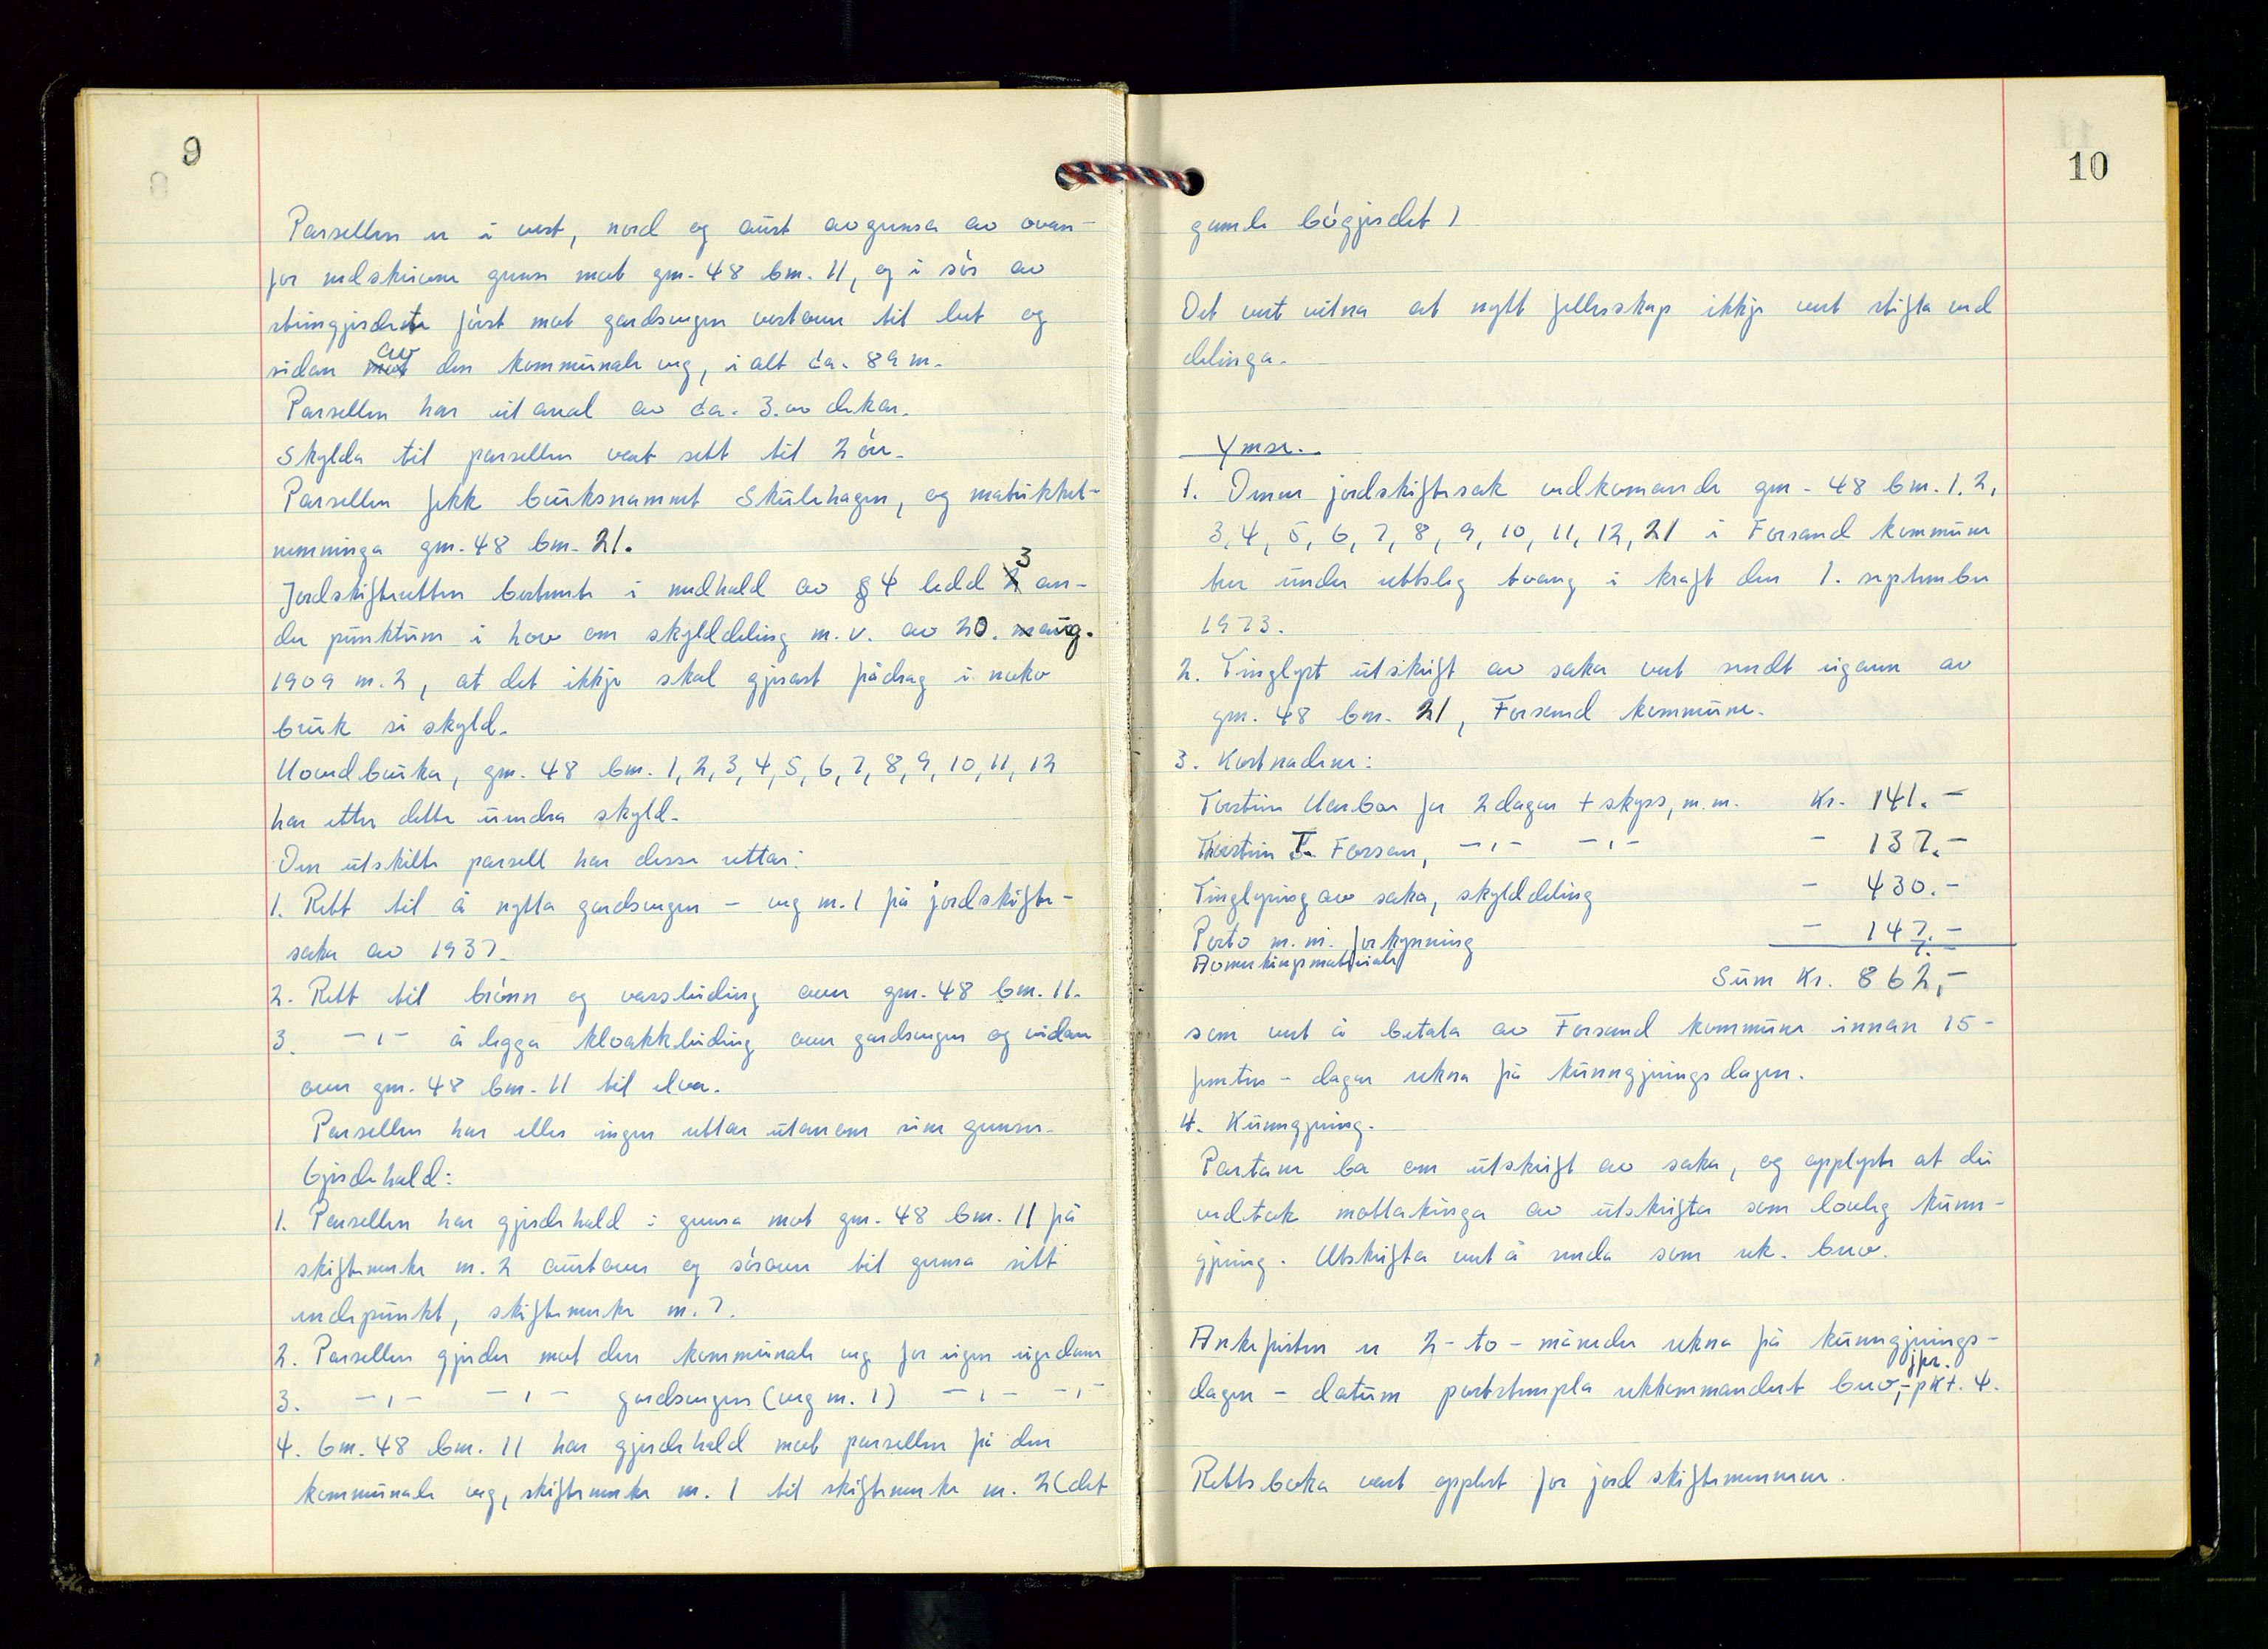 9
Parsellen er i vest, nord og aust avgrensa av ovan-
for nedskrivne grense mot gnr. 48 bnr. 11, og i sør av
steingjerdet først mot gardsvegen vestover til led og
sidan av den kommunale veg, i alt ca. 89 m.
Parsellen har eit areal av ca. 3.00 dekar.
Skylda til parsellen vart sett til 2 øre.
Parsellen fekk bruksnamnet Skulehagen, og matrikkel-
nemninga gnr. 48 bnr. 21.
Jordskifteretten bestemte i medhald av § 4 ledd 3 an-
dre punktum i lov om skylddeling m.v. av 20. aug.
1909 nr. 2, at det ikkje skal gjerast frådrag i noko
bruk si skyld.
Hovudbruka, gnr. 48 bnr. 1, 2, 3, 4, 5, 6, 7, 8, 9, 10, 11, 12
har etter dette uendra skyld.
Den utskilte parsell har desse rettar:
1. Rett til å nytta gardsvegen – veg nr. 1 på jordskifte-
saka av 1937.
2. Rett til brønn og vassleiding over gnr. 48 bnr. 11.
3. –"– å legga kloakkleiding over gardsvegen og vidare
over gnr. 48 bnr. 11 til elva.
Parsellen har elles ingen rettar utanom sine grenser.
Gjerdehald:
1. Parsellen har gjerdehald i grensa mot gnr. 48 bnr. 11 frå
skiftemerke nr. 2 austover og sørover til grensa sitt
endepunkt, skiftemerke nr. 7.
2. Parsellen gjerder mot den kommunale veg for eigen eigedom
3. –"– –"– gardsvegen (veg nr. 1) –"– –"–
4. Gnr. 48 bnr. 11 har gjerdehald mot parsellen frå den
kommunale veg, skiftemerke nr. 1 til skiftemerke nr. 2 (det
10
gamle bøgjerdet)
Det vert vitna at nytt fellesskap ikkje vert stifta ved
delinga.
Ymse.
1. Denne jordskiftesak vedkomande gnr. 48 bnr. 1, 2,
3, 4, 5, 6, 7, 8, 9, 10, 11, 12, 21 i Forsand kommune
ter under rettsleg tvang i kraft den 1. september
1973.
2. Tinglyst utskrift av saka vert sendt eigaren av
gnr. 48 bnr. 21, Forsand kommune.
3. Kostnadene:
Torstein Haabar for 2 dagar + skyss, m.m. Kr. 141.–
Thorstein T. Forsan, –"– –"– – 137.–
Tinglysing av saka, skylddeling – 430.–
Porto m.m. forkynning – 147.–
Avmerkingsmateriale 7.–
Sum Kr. 862,–
som vert å betala av Forsand kommune innan 15-
femten - dagar rekna frå kunngjeringsdagen.
4. Kunngjering.
Partane ba om utskrift av saka, og opplyste at dei
vedtok mottakinga av utskrifta som lovleg kunn-
gjering. Utskrifta vert å senda som rek. brev.
Ankefristen er 2 - to - månader rekna frå kunngjerings-
dagen – datum poststempla rekkommandert brev, jfr. pkt. 4.
Rettsboka vart opplest for jordskiftemennene.